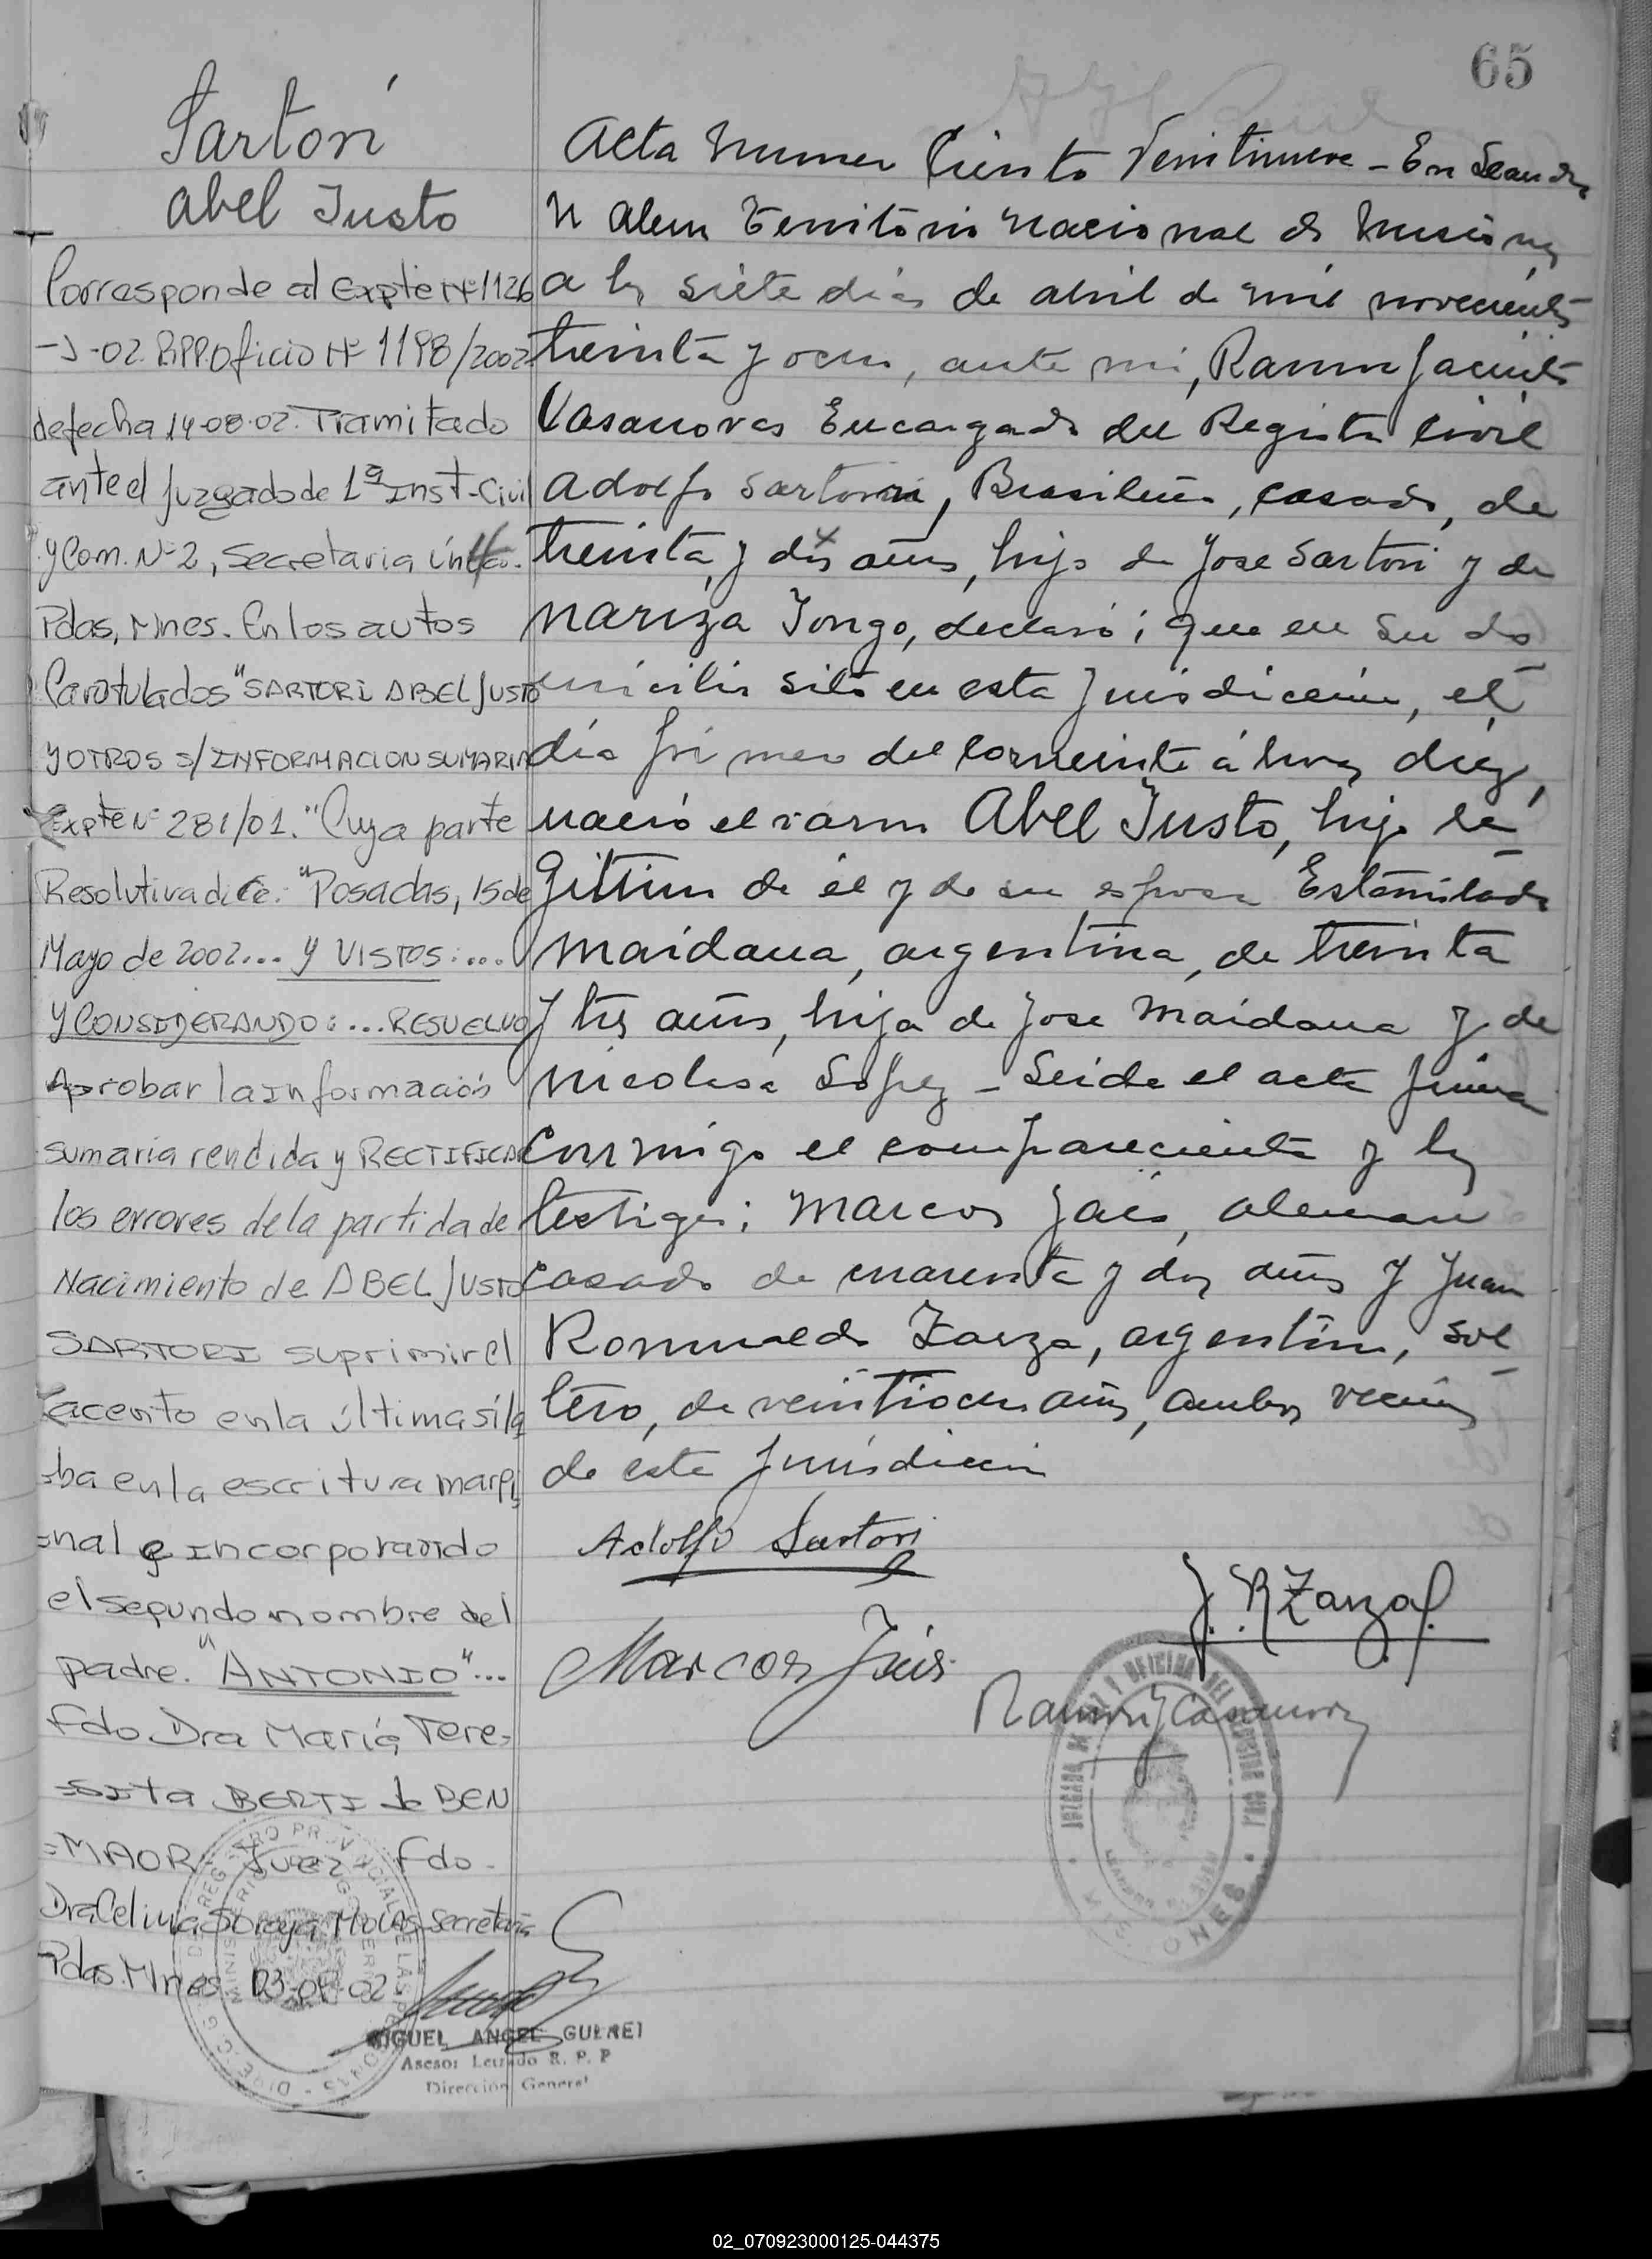 65
Sartorí
Abel Justo
Corresponde al Expte Nº 1126
-J-02. R.P.P. Oficio Nº 1198/2002
de fecha 14-08-02. Tramitado
ante el Juzgado de 1ª Inst-Civil
y Com. Nº 2, Secretaria única.
Pdas, Mnes. En los autos
Caratulados "SARTORI ABEL JUSTO
Y OTROS S/INFORMACION SUMARIA
Expte Nº 281/01." Cuya parte
Resolutiva dice: "Posadas, 15 de
Mayo de 2002... Y VISTOS:....
Y CONSIDERANDO:...RESUELVO
Aprobar la Información
sumaria rendida y RECTIFICAR
los errores de la partida de
Nacimiento de ABEL JUSTO
SARTORI suprimir el
acento en la última síla
=ba en la escritura margi
=nal e incorporando
el segundo nombre del
padre. "ANTONIO"...
Fdo Dra María Tere=
=sita BERTI de BEN
=MAOR Juez Fdo.
Dra Celina Soraya Secretaria
Pdas. Mnes 02
MIGUEL ANGEL
Asesor Letrado R. P. P
Dirección General
Acta Numero Ciento Veintinueve - En Leandro
N Alem Territorio Nacional de Misiones
a los siete dias de abril de mil novecientos
treinta y ocho, ante mi, Ramon Jacinto
Casanovas Encargado del Registro Civil
Adolfo Sartorи, Brasileño, casado, de
treinta y dos años, hijo de Jose Sartori y de
nariza Tongo, declaró; que en su do
micilio sito en esta Jurisdicción, el
dia primero del corriente á horas diez,
nació el varon Abel Justo, hijo le
gitimo de él y de su esposa Estanilada
Maidana, argentina, de treinta
y tres años, hija de Jose Maidana y de
nicolasa Lopez - Leida el acta firma
conmigo el compareciente y los
testigos; Marcos Jais, aleman
casado de cuarenta y dos años y Juan
Romualdo Zarza, argentino, sol
tero, de veintiocho años, ambos vecinos
de esta Jurisdiccion
Adolfo Sartori
J. R Zarza
Marcos Jais
Ramon J Casanovas
JUZGADO DE PAZ Y OFICINA DEL REGISTRO CIVIL
MISIONES
02_070923000125-044375